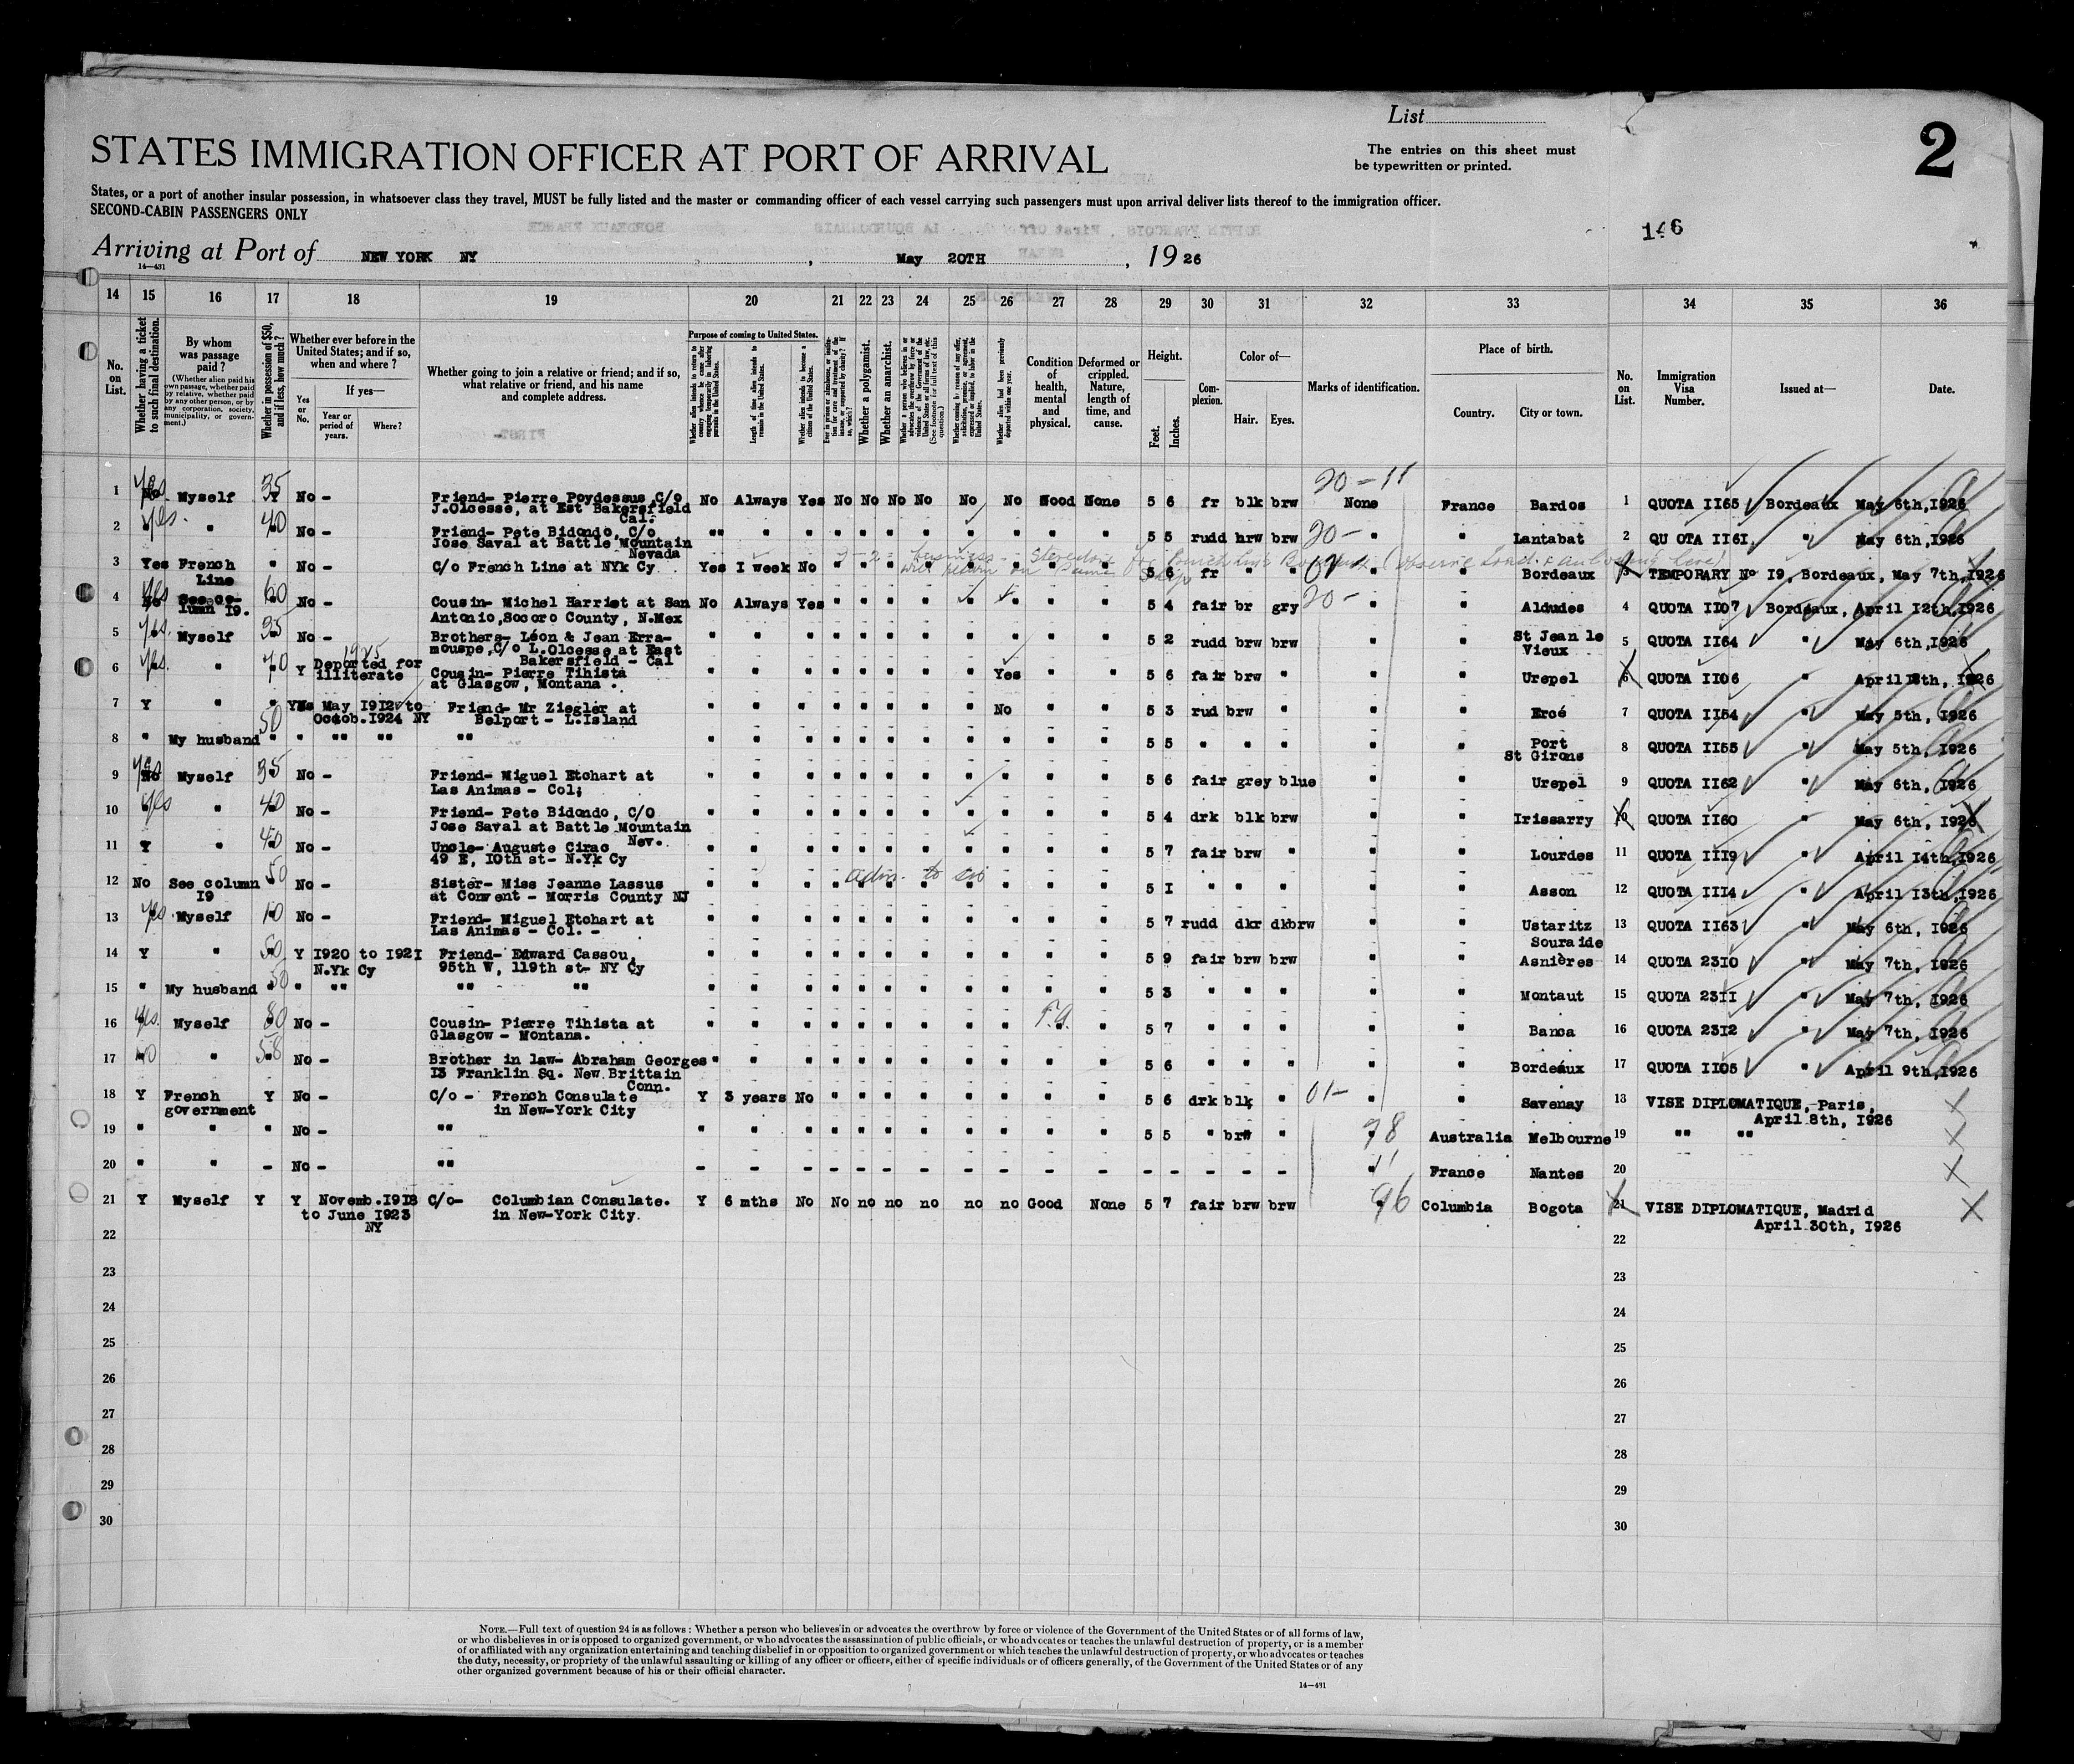 List
2
STATES IMMIGRATION OFFICER AT PORT OF ARRIVAL
The entries on this sheet must
be typewritten or printed.
States, or a port of another insular possession, in whatsoever class they travel, MUST be fully listed and the master or commanding officer of each vessel carrying such passengers must upon arrival deliver lists thereof to the immigration officer.
SECOND-CABIN PASSENGERS ONLY
146
Arriving at Port of NEW YORK NY, May 20TH, 1926
14—431
14 15 16 17 18 19 20 21 22 23 24 25 26 27 28 29 30 31 32 33 34 35 36
No. on List.
Whether having a ticket to such final destination.
By whom was passage paid?
(Whether alien paid his own passage, whether paid by relative, whether paid by any other person, or by any corporation, society, municipality, or government.)
Whether in possession of $50, and if less, how much?
Whether ever before in the United States; and if so, when and where?
If yes—
Yes or No.
Year or period of years.
Where?
Whether going to join a relative or friend; and if so, what relative or friend, and his name and complete address.
Purpose of coming to United States.
Length of time alien intends to remain in the United States.
Whether alien intends to become a citizen of the United States.
Whether a polygamist.
Whether an anarchist.
Condition of health, mental and physical.
Deformed or crippled. Nature, length of time, and cause.
Height.
Feet. Inches.
Complexion.
Color of—
Hair. Eyes.
Marks of identification.
Place of birth.
Country. City or town.
No. on List.
Immigration Visa Number.
Issued at—
Date.
20-11
1 Yes No Myself 35 Y No - Friend- Pierre Poydessus C/o J.Olcesse, at Est Bakersfield Cal. No Always Yes No No No No No No Good None 5 6 fr blk brw None France Bardos 1 QUOTA II65 Bordeaux May 6th,I926
2 Yes. " 40 No - Friend- Pete Bidondo, C/o Jose Saval at Battle Mountain Nevada "" " " " " " " " " " " 5 5 rudd hrw brw 20- " " Lantabat 2 QU OTA II6I " May 6th,I926
3 Yes French Line " No - C/o French Line at NYk Cy Yes I week No " " " " " " " " 5 6 fr " " 01- " " Bordeaux 3 TEMPORARY Nº I9, Bordeaux, May 7th,I926
4 Yes No See column I9. 60 No - Cousin- Michel Harriet at San Antonio,Socoro County, N.Mex No Always Yes " " " " " " " " 5 4 fair br gry 20- " " Aldudes 4 QUOTA II07 Bordeaux, April I2th,I926
5 Yes. Myself 35 No - Brothers- Léon & Jean Erramouspe,C/o L.Olcesse at East Bakersfield - Cal " " " " " " " " " " " 5 2 rudd brw brw " " St Jean le Vieux 5 QUOTA II64 " May 6th,I926
6 Yes. " 70 Y 1925 Deported for illiterate Cousin- Pierre Tihista at Glasgow, Montana . " " " " " " " " Yes " " 5 6 fair brw " " " Urepel 6 QUOTA II06 " April 8th, I926
7 Y " " Yes May I9I2 to Octob.I924 NY Friend- Mr Ziegler at Belport - L.Island " " " " " " " " No " " 5 3 rud brw " " " Ercé 7 QUOTA II54 " May 5th, I926
8 " My husband 50 " "" "" "" " " " " " " " " " " " 5 5 " " " " " Port St Girons 8 QUOTA II55 " May 5th, I926
9 Yes No Myself 35 No - Friend- Miguel Etchart at Las Animas - Col; " " " " " " " " " " " 5 6 fair grey blue " " Urepel 9 QUOTA II62 " May 6th, I926
10 Yes " 40 No - Friend- Pete Bidondo, C/O Jose Saval at Battle Mountain Nev. " " " " " " " " " " " 5 4 drk blk brw " " Irissarry 10 QUOTA II60 " May 6th, I926
11 Y " 40 No - Uncle- Auguste Cirac 49 E, I0th st- N.Yk Cy " " " " " " " " " " " 5 7 fair brw " " " Lourdes 11 QUOTA III9 " April I4th,I926
12 No See column I9 50 No - Sister- Miss Jeanne Lassus at Convent - Morris County NJ " " " " " " " " " " " 5 I " " " " " Asson 12 QUOTA III4 " April I3th,I926
13 Yes. Myself 10 No - Friend- Miguel Etchart at Las Animas - Col. - " " " " " " " " " " " 5 7 rudd dkr dkbrw " " Ustaritz Souraide 13 QUOTA II63 " May 6th, I926
14 Y " 50 Y I920 to I92I N.Yk Cy Friend- Edward Cassou, 95th W, II9th st- NY Cy " " " " " " " " " " " 5 9 fair brw brw " " Asnières 14 QUOTA 23I0 " May 7th, I926
15 " My husband 50 " "" "" "" " " " " " " " " " " " 5 3 " " " " " Montaut 15 QUOTA 23II " May 7th, I926
16 Yes. Myself 80 No - Cousin- Pierre Tihista at Glasgow - Montana. " " " " " " " " " " " 5 7 " " " " " Banca 16 QUOTA 23I2 " May 7th, I926
17 No " 58 No - Brother in law- Abraham Georges I3 Franklin Sq. New Brittain Conn. " " " " " " " " " " " 5 6 " " " " " Bordeaux 17 QUOTA II05 " April 9th,I926
18 Y French government Y No - C/o - French Consulate in New-York City Y 3 years No " " " " " " " " 5 6 drk blk " 01- " " Savenay 18 VISE DIPLOMATIQUE, Paris, April 8th, I926
19 " " " No - "" " " " " " " " " " " " 5 5 " brw " 98 Australia Melbourne 19 "" ""
20 " " - No - "" - - - - - - - - - - - - - - - - " France Nantes 20
21 Y Myself Y Y Novemb.I918 to June I923 NY C/o- Columbian Consulate. in New-York City. Y 6 mths No No no no no no no Good None 5 7 fair brw brw 96 Columbia Bogota 21 VISE DIPLOMATIQUE, Madrid April 30th, I926
22 22
23 23
24 24
25 25
26 26
27 27
28 28
29 29
30 30
NOTE.—Full text of question 24 is as follows: Whether a person who believes in or advocates the overthrow by force or violence of the Government of the United States or of all forms of law,
or who disbelieves in or is opposed to organized government, or who advocates the assassination of public officials, or who advocates or teaches the unlawful destruction of property, or is a member
of or affiliated with any organization entertaining and teaching disbelief in or opposition to organized government or which teaches the unlawful destruction of property, or who advocates or teaches
the duty, necessity, or propriety of the unlawful assaulting or killing of any officer or officers, either of specific individuals or of officers generally, of the Government of the United States or of any
other organized government because of his or their official character.
14—431